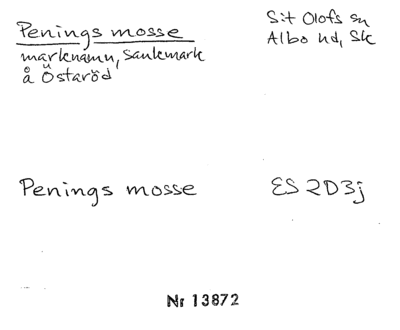 Penings mosse
S:t Olofs sn
Albo hd, Sk
marknamn, sankmark
å Östaröd
Penings mosse
ES 2D3j
Nr 13872